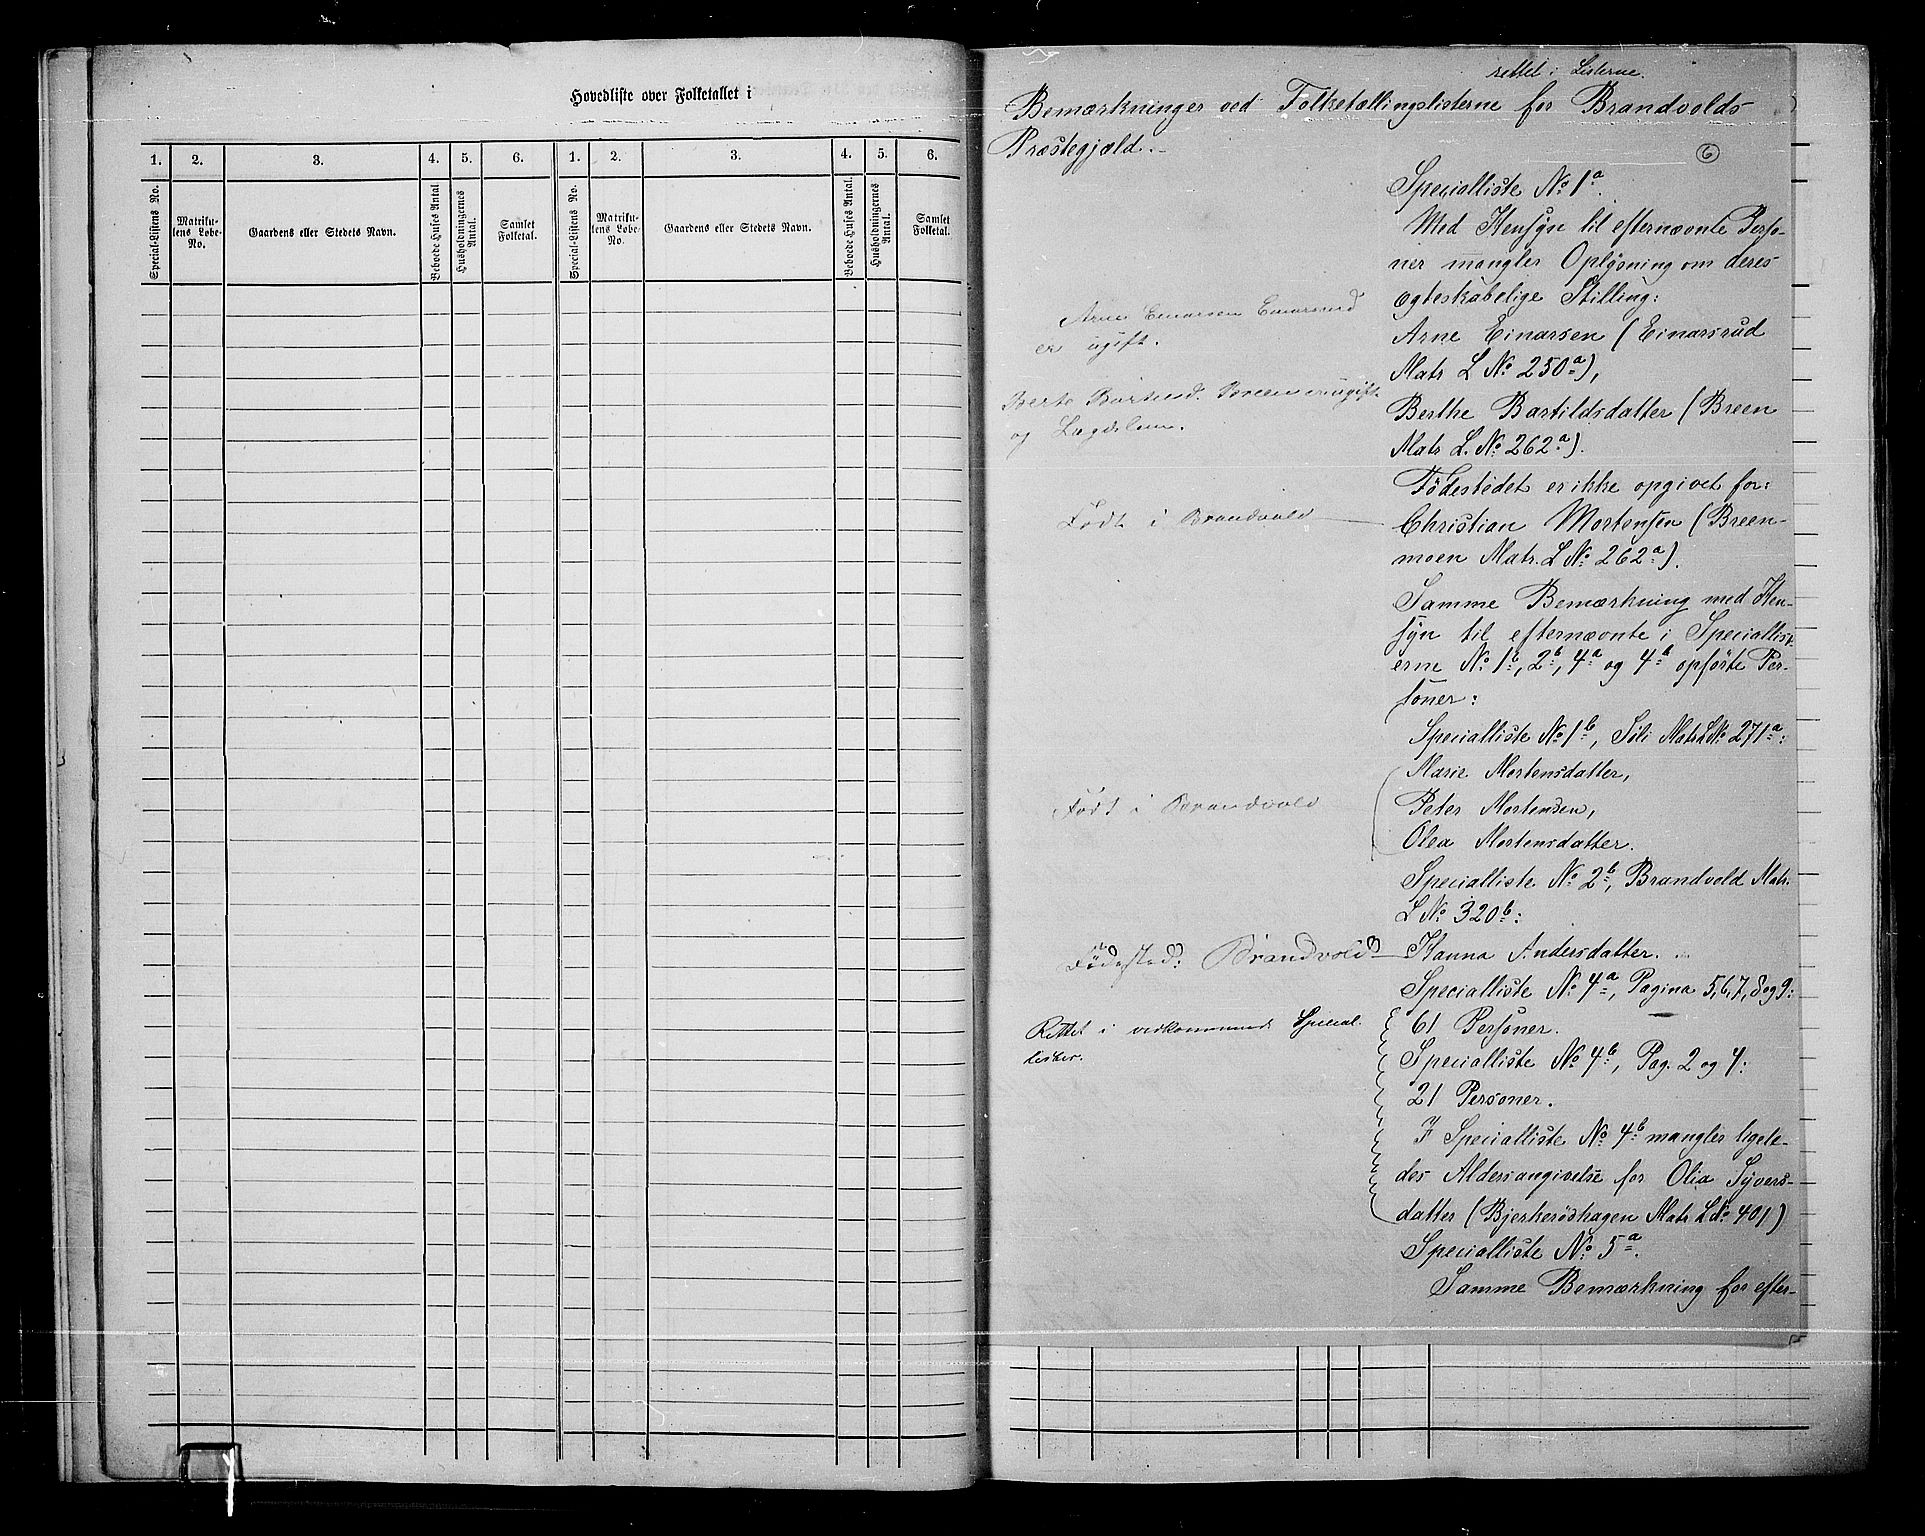 Hovedliste over Folketallet i
1. 2. 3. 4. 5. 6. 1. 2. 3. 4. 5. 6.
Special-Listens No.
Matriku-
lens Løbe-
No.
Gaardens eller Stedets Navn.
Beboede Huses Antal
Husholdningernes
Antal.
Samlet
Folketal.
Special-Listens No.
Matriku-
lens Løbe-
No.
Gaardens eller Stedets Navn.
Beboede Huses Antal.
Husholdningernes
Antal.
Samlet
Folketal.
rettet i Listerne.
Bemærkninger ved Folketællingslisterne for Brandvolds
Præstegjæld.
6
Specialliste No 1a.
Med Hensyn til efternævnte Perso-
ner mangler Oplysning om deres
ægteskabelige Stilling:
Arne Einarsen Einarsrud
er ugift.
Arne Einarsen (Einarsrud
Matr L No 250a),
Breen er ugift
og Lægdslem.
Berthe Bartildsdatter (Breen
Matr L. No 262a).
Födestedet er ikke opgivet for:
Födt i Brandvold
Christian Mortensen (Breen-
moen Matr. L No 262a).
Samme Bemærkning med Hen-
syn til efternævnte i Speciallist-
erne No 1b, 2b, 4a og 4b opførte Per-
soner:
Specialliste No 1b, Söli Matr L No 271a:
Marie Mortensdatter,
Födt i Brandvold
Peter Mortensen,
Olea Mortensdatter.
Specialliste No 2b, Brandvold Matr.
L No 320b:
Födested: Brandvold
Hanna Andersdatter.
Specialliste No 4a, Pagina 5, 6, 7, 8 og 9:
Rettet i vedkommende Special-
lister.
61 Personer.
Specialliste No 4b, Pag. 2 og 4:
21 Personer.
I Specialliste No 4b mangler ligele-
des Aldersangivelse for Olia Syvers-
datter (Bjerkerødhagen Matr L No 401)
Specialliste No 5a.
Samme Bemærkning for efter-